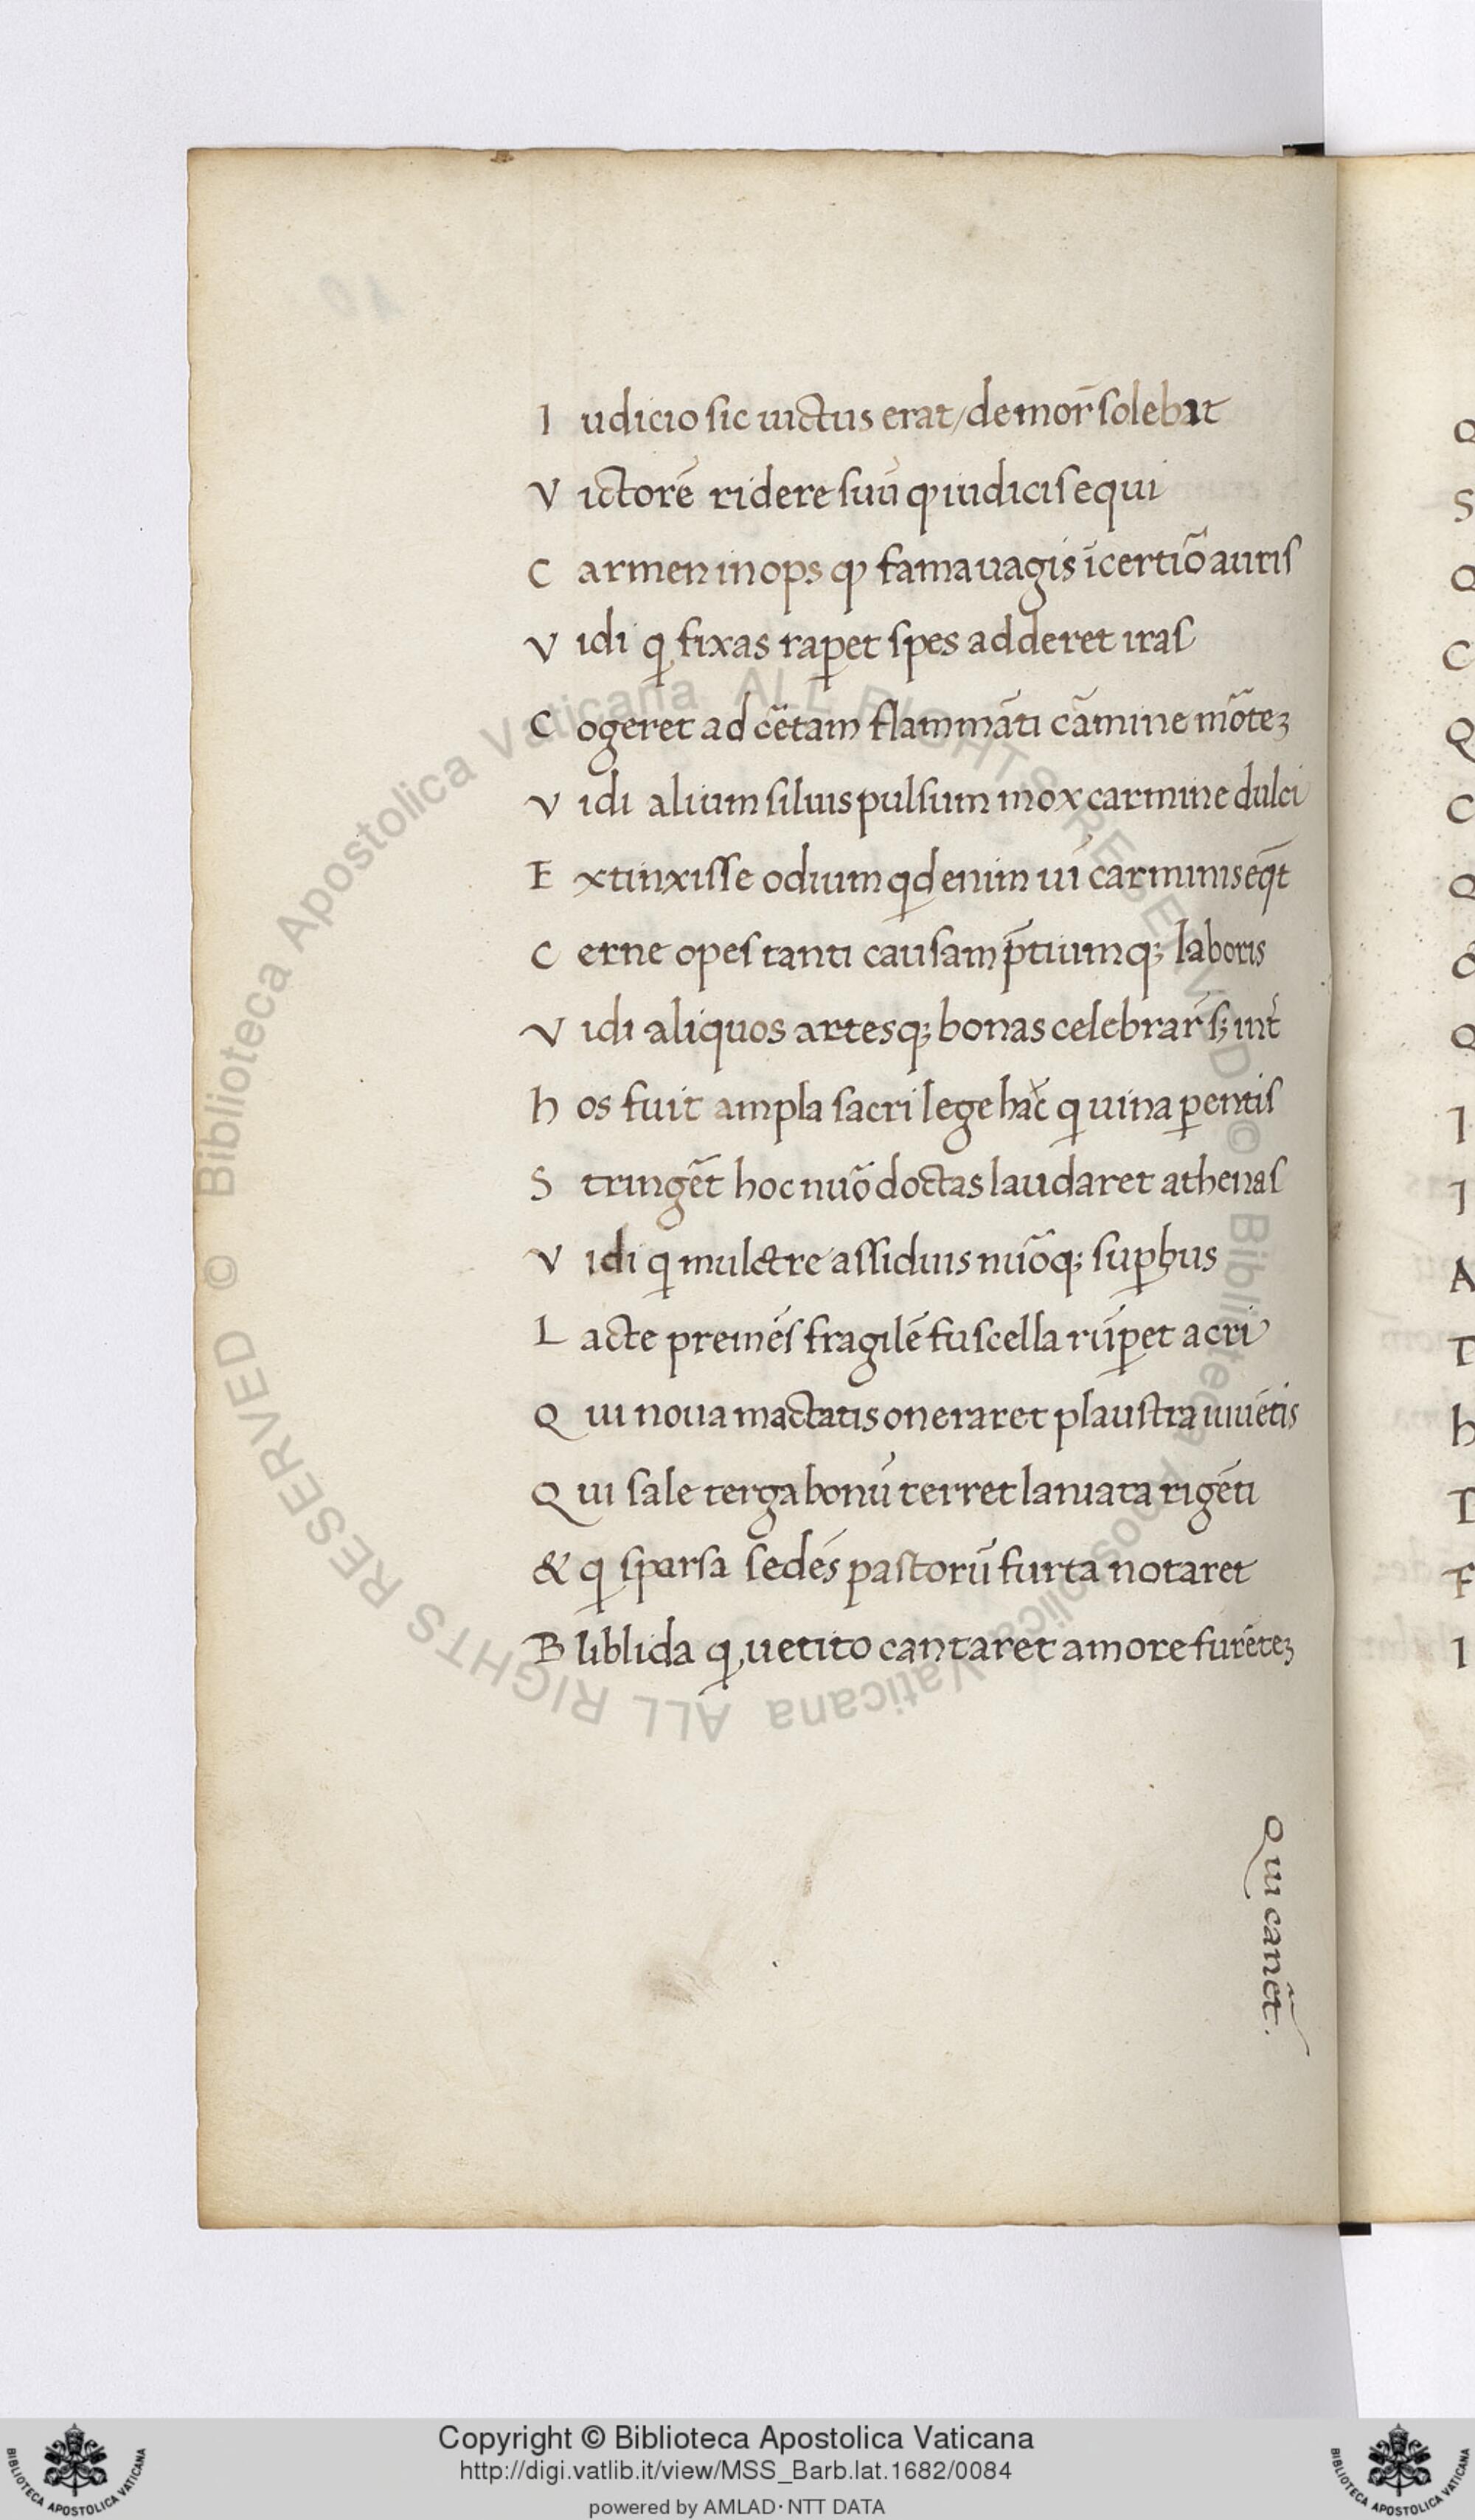 I udicio sic uictus erat/ de mor̄ solebat
V ictorē ridere suū qͥ iudicis equi
C armen inops qͥ fama uagis īcertiō auris
V idi qͥ fixas raꝑet spes adderet iras
C ogeret ad cētam flammāti cāmine mōteꝫ
V idi alium siluis pulsum mox carmine dulci
E xtinxisse odium qͥd enim uī carminis eq̄t
C erne opes tanti causam p̄tiumqꝫ laboris
V idi aliquos artesqꝫ bonas celebrar̄ sꝫ int̄
h os fuit ampla sacri lege hac̄ qͥ uina ꝑentis
S tringēt hoc nuō doctas laudaret athenas
V idi qͥ mulctre assiduis nuōqꝫ suꝑbus
L acte premēs fragilē fuscella rūꝑet acri
Q ui noua mactatis oneraret plaustra iuuētis
Q ui sale terga bonū terret laniata rigēti
& qͥ sparsa sedēs pastorū furta notaret
B liblida qͥ uetito cantaret amore furēteꝫ
Qui canēt.
© Biblioteca Apostolica Vaticana ALL RIGHTS RESERVED © Biblioteca Apostolica Vaticana ALL RIGHTS RESERVED
Copyright © Biblioteca Apostolica Vaticana
http://digi.vatlib.it/view/MSS_Barb.lat.1682/0084
powered by AMLAD·NTT DATA
BIBLIOTECA APOSTOLICA VATICANA
BIBLIOTECA APOSTOLICA VATICANA